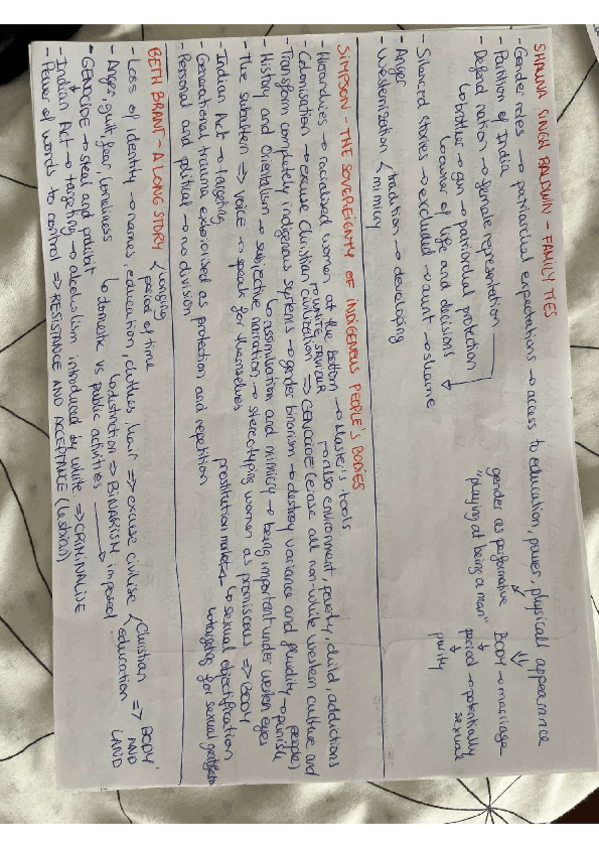 SHAUNA SINGH BALDWIN - FAMILY TIES
- Gender roles → patriarchal expectations → access to education, power, physical appearance
- Partition of India
gender as performative BODY → marriage
- Defend nation → female representation
"playing at being a man" period → potentially sexual
↳ brother → gun → patriarchal protection
purity
↳ owner of life and decisions
- Silenced stories → excluded → aunt → shame
- Anger
- Westernization < tradition → developing
mimicry
SIMPSON - THE SOVEREIGNTY OF INDIGENOUS PEOPLE'S BODIES
- Hierarchies → racialised women at the bottom → Master's tools
WHITE SAVIOUR → also environment, poverty, child, addictions
- Colonisation → excuse Christian civilization ⇒ GENOCIDE (erase all non-white western culture and people)
- Transform completely indigenous systems → gender binarism → destroy variance and fluidity → punish
↳ assimilation and mimicry → being important under western eyes
- History and Orientalism → subjective narration → stereotyping women as promiscuous ⇒ BODY
- The subaltern ⇒ voice → speak for themselves
- Indian Act → targeting
prostitution → sexual objectification
- Generational trauma exteriorised as protection and repetition
↳ targeting for sexual
- Personal and political → no division
BETH BRANT - A LONG STORY < longing
period of time
- Loss of identity → names, education, clothes, hair ⇒ excuse civilise < Christian education ⇒ BODY AND LAND
↳ distinction ⇒ BINARISM imposed
- Anger, guilt, fear, loneliness ↳ domestic vs public activities
- GENOCIDE → steal and prohibit
- Indian Act → targeting → alcoholism introduced by white ⇒ CRIMINALISE
- Power of words to control ⇒ RESISTANCE AND ACCEPTANCE (lesbian)